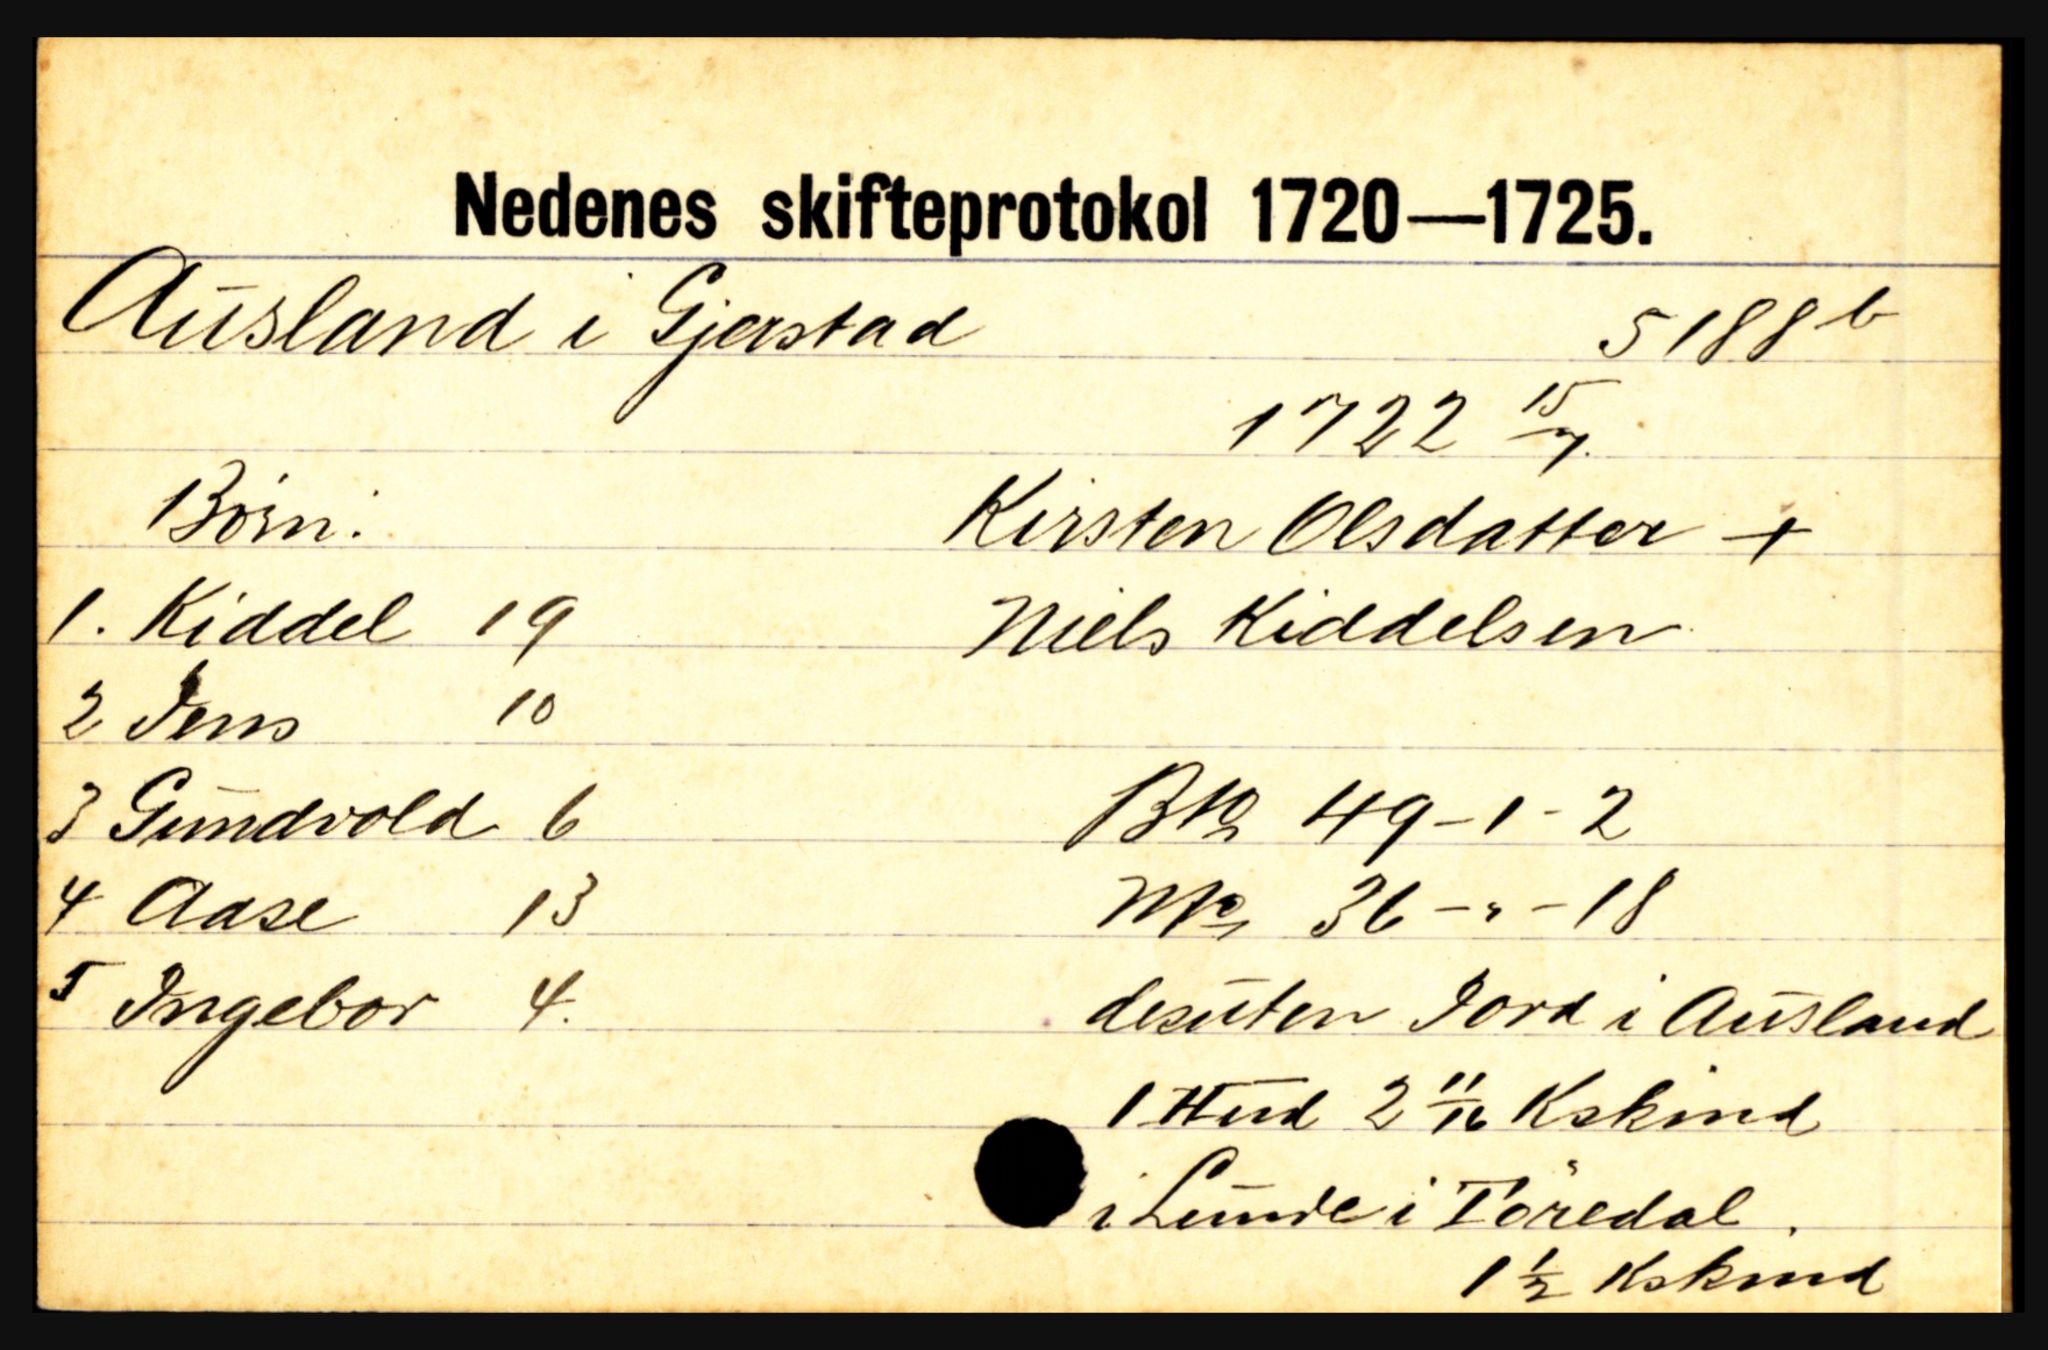 Nedenes skifteprotokol 1720—1725.
Ausland i Gjerstad 5188 b
1722 15/7.
Börn: Kirsten Olsdatter +
1. Kiddel 19 Niels Kiddelsen
2 Jens 10
3 Gundvold 6 Bto 49-1-2
4 Aase 13 Nto 36-"-18
5 Ingebor 4. desuten Jord i Ausland
1 Hud 2 11/16 Kskind
i Lunde i Töredal.
1 1/2 Kskind